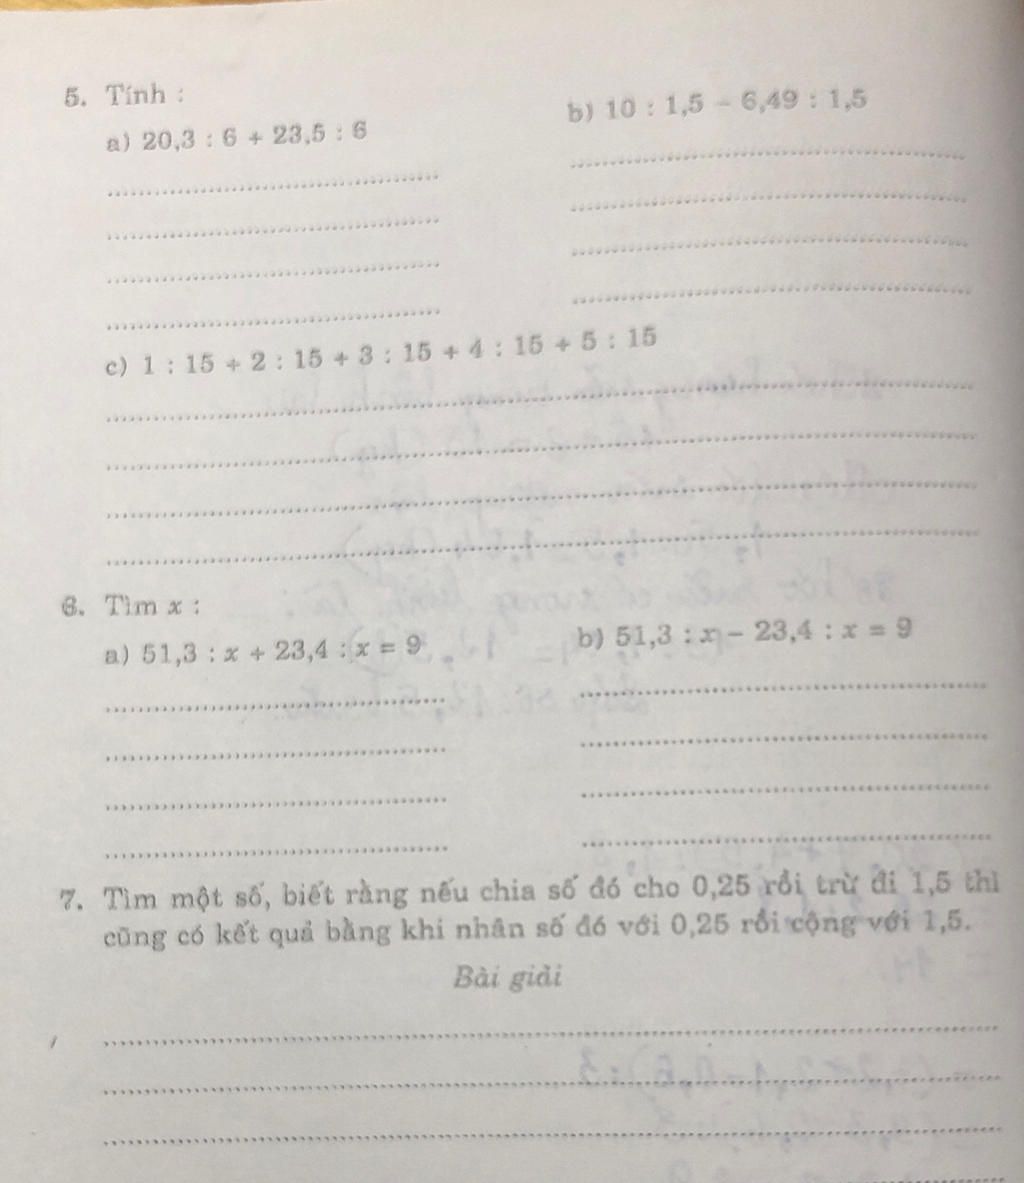 5. Tính :
a) 20,3 : 6 + 23,5 : 6
b) 10 : 1,5 - 6,49 : 1,5
c) 1 : 15 + 2 : 15 + 3 : 15 + 4 : 15 + 5 : 15
6. Tìm x :
a) 51,3 : x + 23,4 : x = 9
b) 51,3 : x - 23,4 : x = 9
7. Tìm một số, biết rằng nếu chia số đó cho 0,25 rồi trừ đi 1,5 thì
cũng có kết quả bằng khi nhân số đó với 0,25 rồi cộng với 1,5.
Bài giải